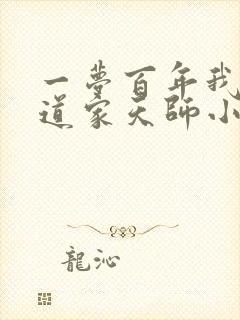 一夢百年我
道家天師小
龍沁